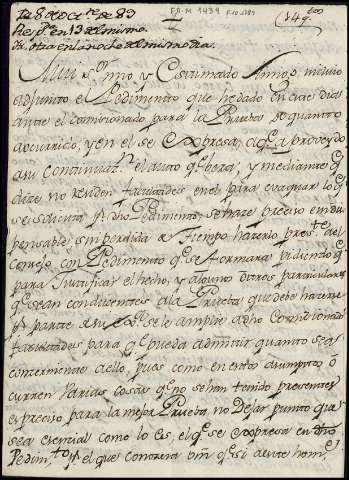 F.D.M 1439
De 8 de Oct.re de 89
Resp.da en 13 del mismo.
otra en la noche del mismo dia.
Muy S.r mio y Estimado Amigo, incluio
adjunto el Pedimento que he dado en este dia
ante el Comisionado para la Prueba de quanto
a ocurrido, y en el se expresa, a q.e a proveydo
a su Continuaz.n el auto q.e bera; y mediante q.e
dice no residen facultades en el para evaquar lo q.e
se solicita p.r dho Pedimento, se hace preciso e indis
pensable sin perdida de Tiempo hacerlo pres.te al
Consejo con Pedimento q.e se formara pidiendo q.e
para Justificar el hecho, y algunos otros particulares
q.e sean conducentes a la Prueba que debe hacerse
p.r parte de su se le amplie a dho Comisionado
facultades para q.e pueda admitir quanto sea
concerniente a ello, pues como en estos asumptos o
curren varias cosas q.e no se han tenido presentes
es preciso para la mejor Prueba no Dejar punto que
sea esencial como lo es, el q.e se expresa en dho
Pedim.to p.r el que Conocera Vm q.e si de este